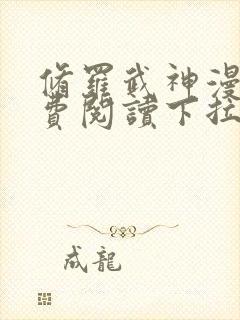 脩羅武神漫
費閱讀下拉
成龍